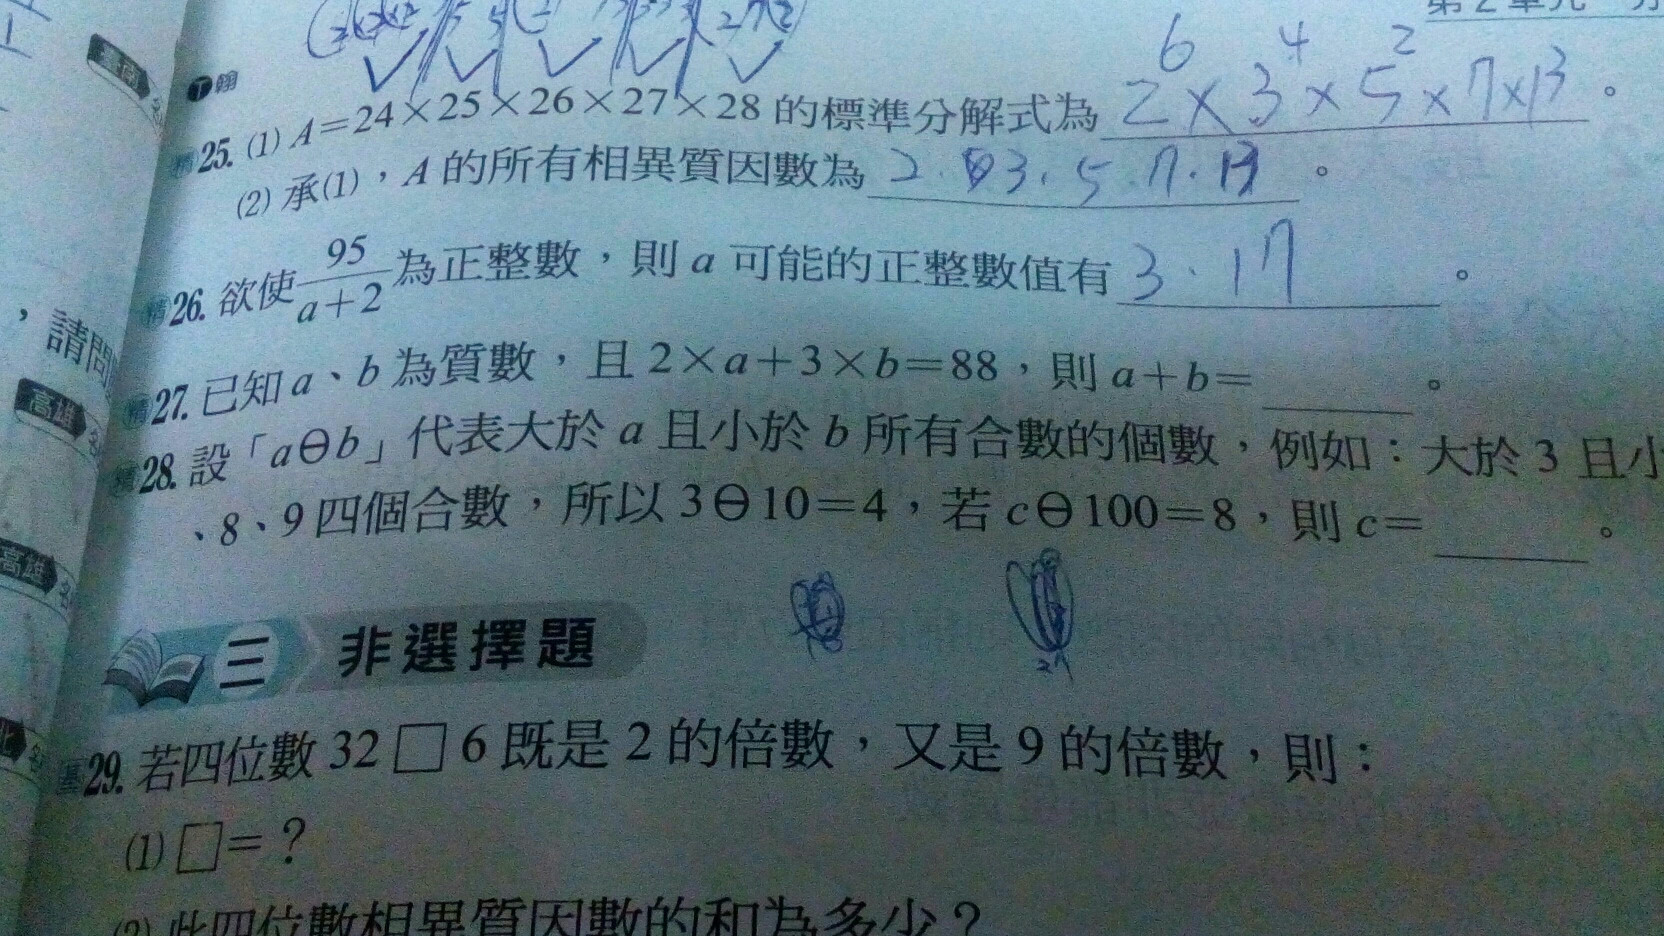 第2單元
臺南
翰
25. (1) A=24×25×26×27×28 的標準分解式為 2⁶×3⁴×5²×7×13 。
(2) 承(1),A 的所有相異質因數為 2.3.5.7.13 。
精26. 欲使 95/(a+2) 為正整數,則 a 可能的正整數值有 3.17 。
,請問
精27. 已知 a、b 為質數,且 2×a+3×b=88,則 a+b= 。
高雄
28. 設「a⊖b」代表大於 a 且小於 b 所有合數的個數,例如:大於 3 且小
、8、9 四個合數,所以 3⊖10=4,若 c⊖100=8,則 c= 。
高雄
三 非選擇題
基29. 若四位數 32□6 既是 2 的倍數,又是 9 的倍數,則:
(1) □=?
(2) 此四位數相異質因數的和為多少?